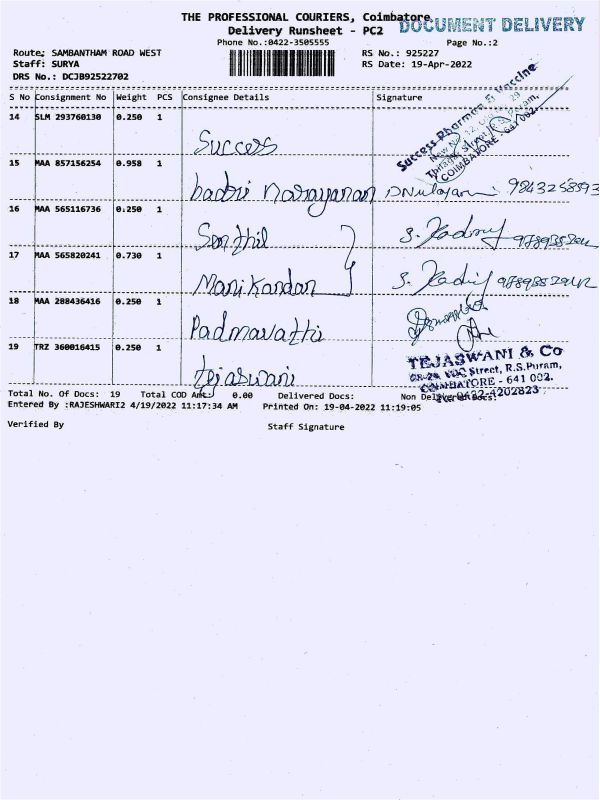 THE PROFESSIONAL COURIERS, Coimbatore
DOCUMENT DELIVERY
Delivery Runsheet - PC2
Phone No.:0422-3505555
Page No.:2
Route: SAMBANTHAM ROAD WEST
RS No.: 925227
Staff: SURYA
RS Date: 19-Apr-2022
DRS No.: DCJ3B92522702
S No Consignment No Weight PCS Consignee Details Signature
14 SLM 293760130 0.250 1
Success
Success Pharma & Vaccine
COIMBATORE
15 MAA 857156254 0.958 1
badri narayanan 9843258593
16 MAA 565116736 0.250 1
Senthil
17 MAA 565820241 0.730 1
Manikandan
18 MAA 288436416 0.250 1
Padmavathi
19 TRZ 360016415 0.250 1
tejaswani
TEJASWANI & Co
Street, R.S.Puram,
COIMBATORE - 641 002.
0422-4202823
Total No. Of Docs: 19 Total COD Amt: 0.00 Delivered Docs: Non Delivered Docs:
Entered By :RAJESHWARI2 4/19/2022 11:17:34 AM Printed On: 19-04-2022 11:19:05
Verified By Staff Signature